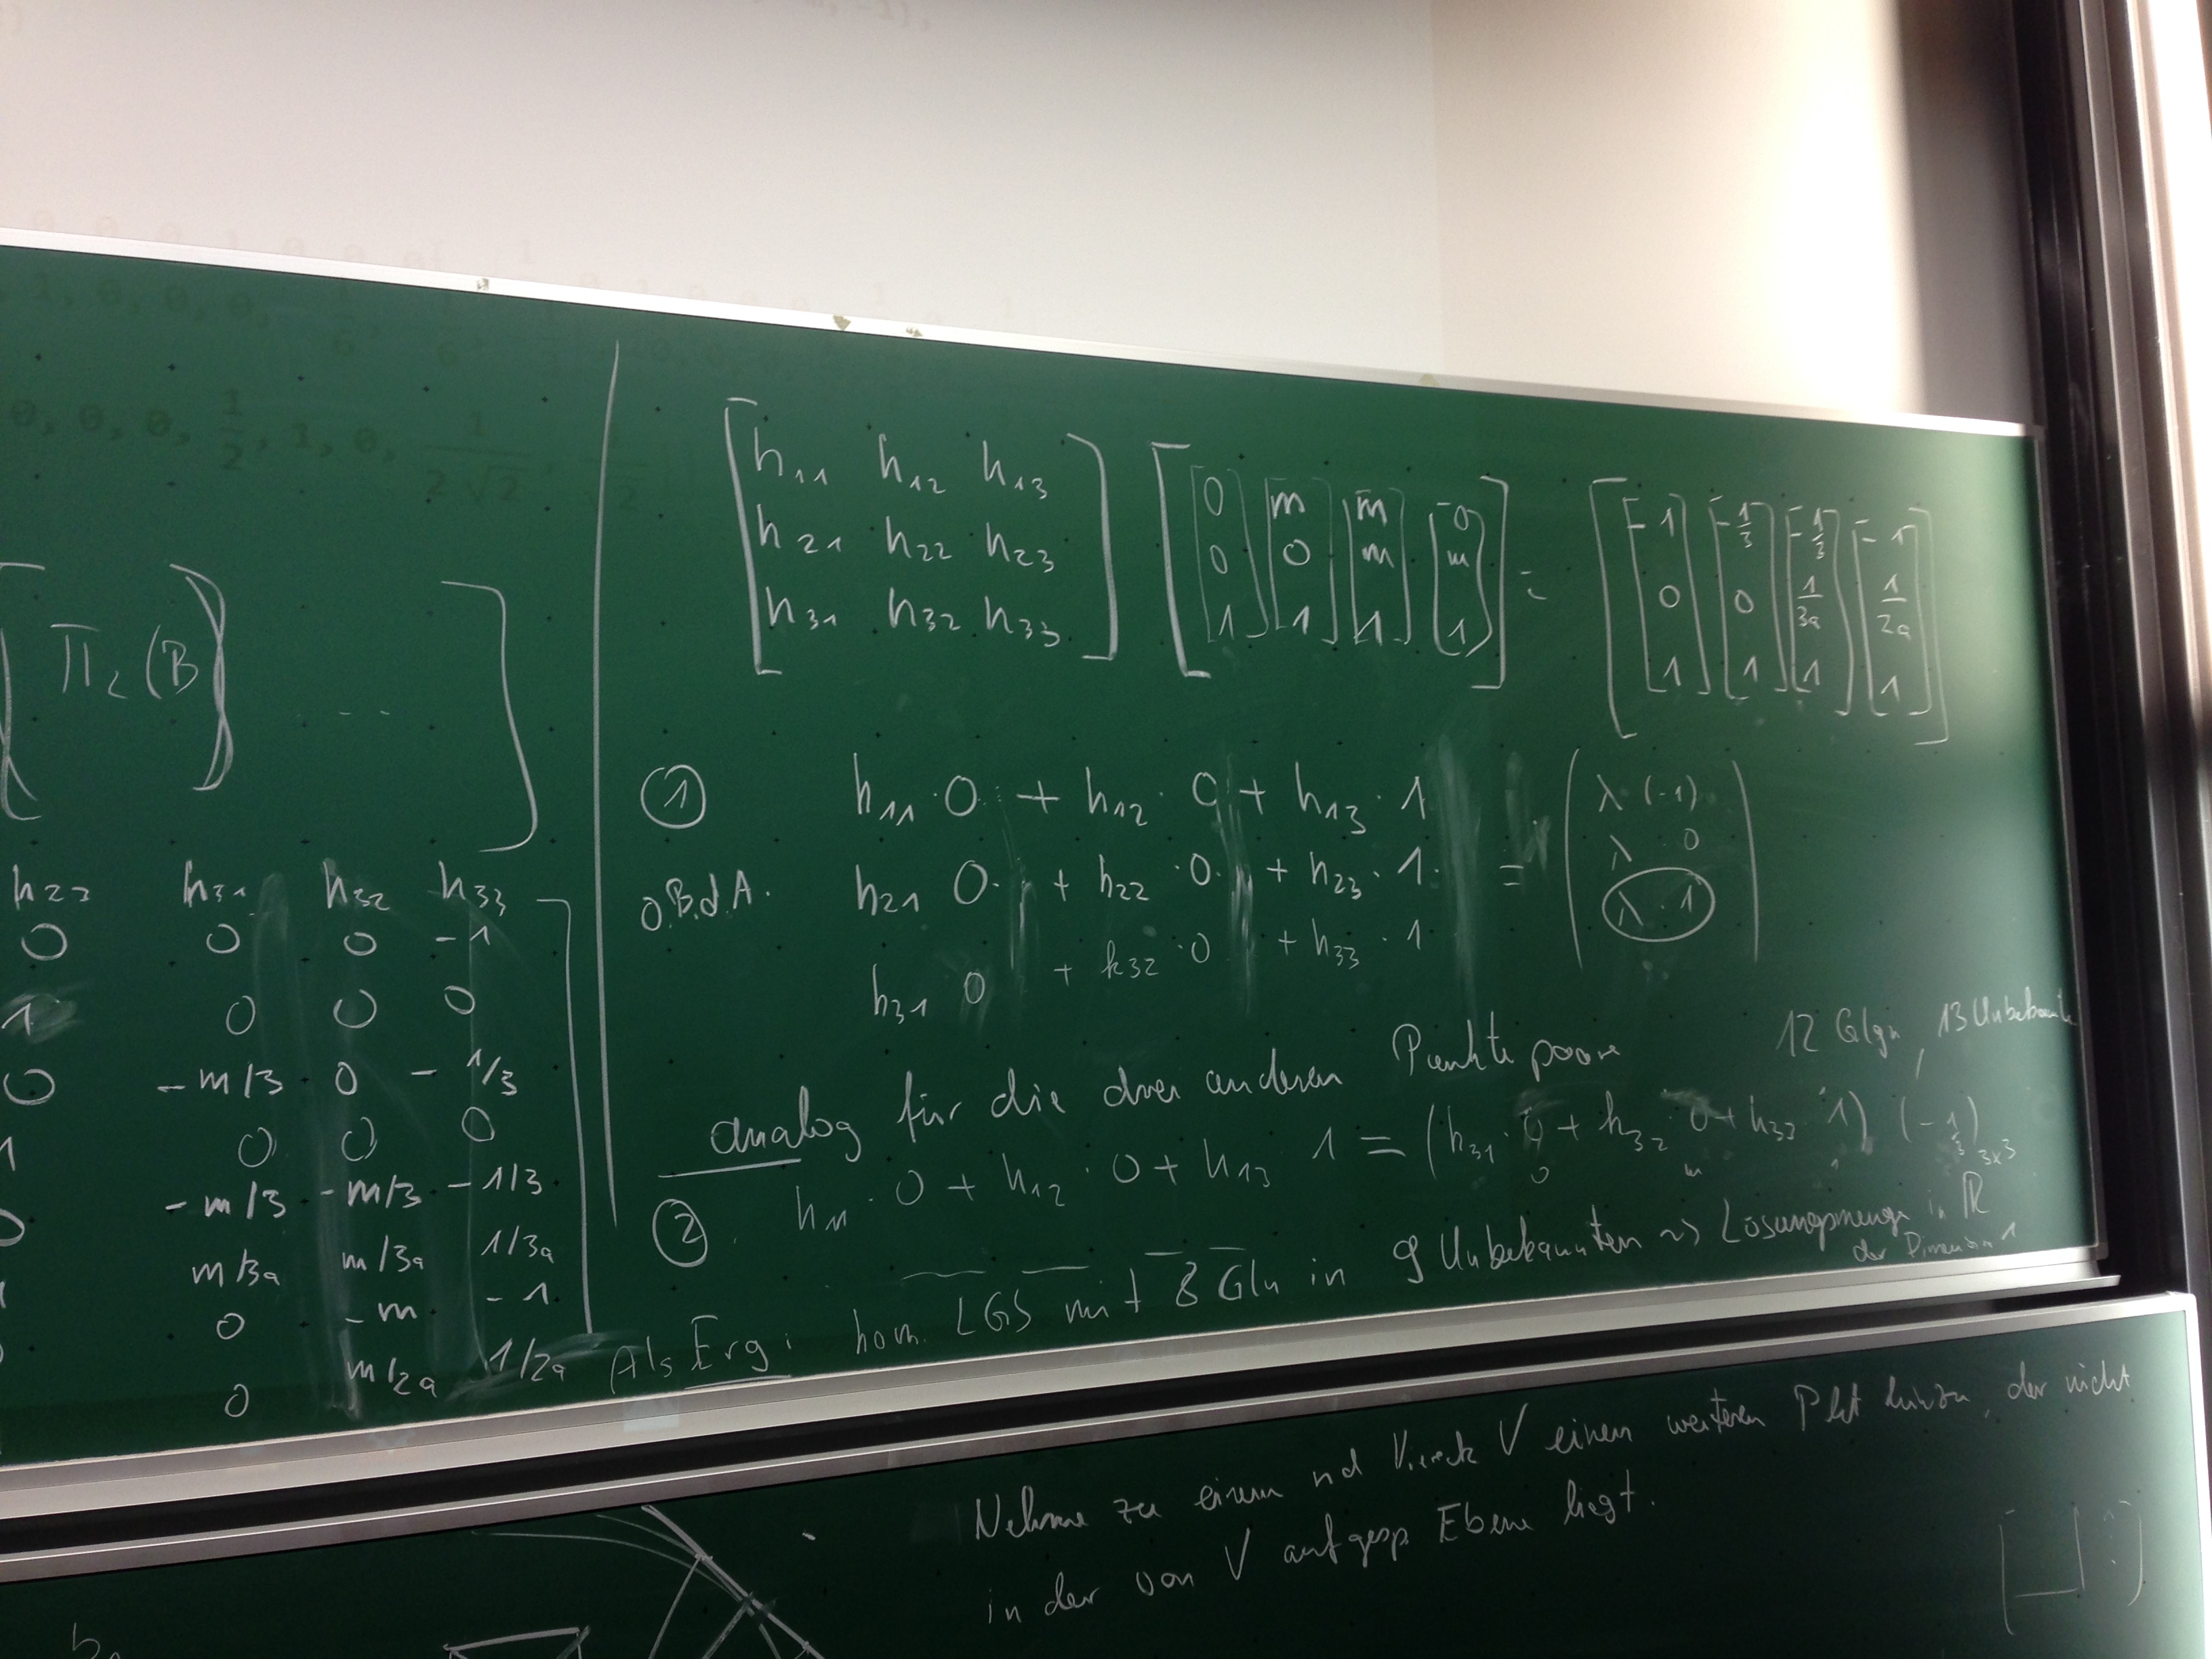 0, 0, 0, 1/2, 1, 0, 1/(2√2)
Π₂(B) ...
h₂₃ h₃₁ h₃₂ h₃₃
0 0 0 -1
1 0 0 0
0 -m/3 0 -1/3
1 0 0 0
-m/3 -m/3 -1/3
m/3a m/3a 1/3a
0 -m -1
0 m/2a 1/2a
[h₁₁ h₁₂ h₁₃] [0 m m 0] [-1 -1/3 -1/3 -1]
[h₂₁ h₂₂ h₂₃] [0 0 m m] = [0 0 1/3a 1/2a]
[h₃₁ h₃₂ h₃₃] [1 1 1 1] [1 1 1 1]
① h₁₁·0 + h₁₂·0 + h₁₃·1 λ(-1)
o.B.d.A. h₂₁ 0· + h₂₂·0· + h₂₃·1· = λ·0
h₃₁ 0 + h₃₂·0 + h₃₃·1 λ·1
analog für die drei anderen Punktepaare
12 Glgn, 13 Unbekannte
② h₁₁·0 + h₁₂·0 + h₁₃ 1 = (h₃₁·0 + h₃₂·0 + h₃₃·1)(-1/3)
0 m 1
Als Erg: hom. LGS mit 8 Gln in 9 Unbekannten ~> Lösungsmenge in ℝ^3x3
der Dimension 1
Nehme zu einem nd Viereck V einen weiteren Pkt hinzu, der nicht
in der von V aufgesp Ebene liegt.